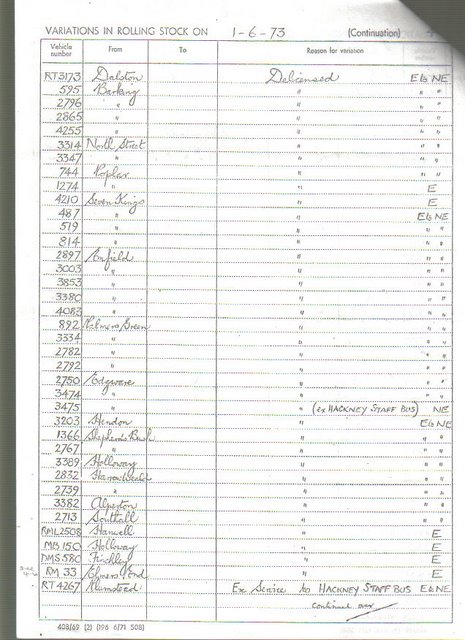 VARIATIONS IN ROLLING STOCK ON 1-6-73 (Continuation)
Vehicle number From To Reason for variation
RT3173 Dalston Delicensed E & NE
595 Barking " " "
2796 " " " "
2865 " " " "
4255 " " " "
3314 North Street " " "
3347 " " " "
744 Poplar " " "
1274 " " E
4210 Seven Kings " E
487 " " E & NE
519 " " " "
814 " " " "
2897 Enfield " " "
3003 " " " "
3853 " " " "
3380 " " " "
4083 " " " "
892 Palmers Green " " "
3334 " " " "
2782 " " " "
2792 " " " "
2750 Edgware " " "
3474 " " " "
3475 " " (ex HACKNEY STAFF BUS) NE
3203 Hendon " E & NE
1366 Shepherd's Bush " " "
2767 " " " "
3389 Holloway " " "
2832 Harrow Weald " " "
2739 " " " "
3382 Alperton " " "
2713 Southall " " "
RML2508 Hanwell " E
MB 150 Holloway " E
DMS 580 Finchley " E
RM 33 Elmers End " E
RT4267 Plumstead Ex Service to HACKNEY STAFF BUS E & NE
continued over
408/69 (2) (196 6/71 508)